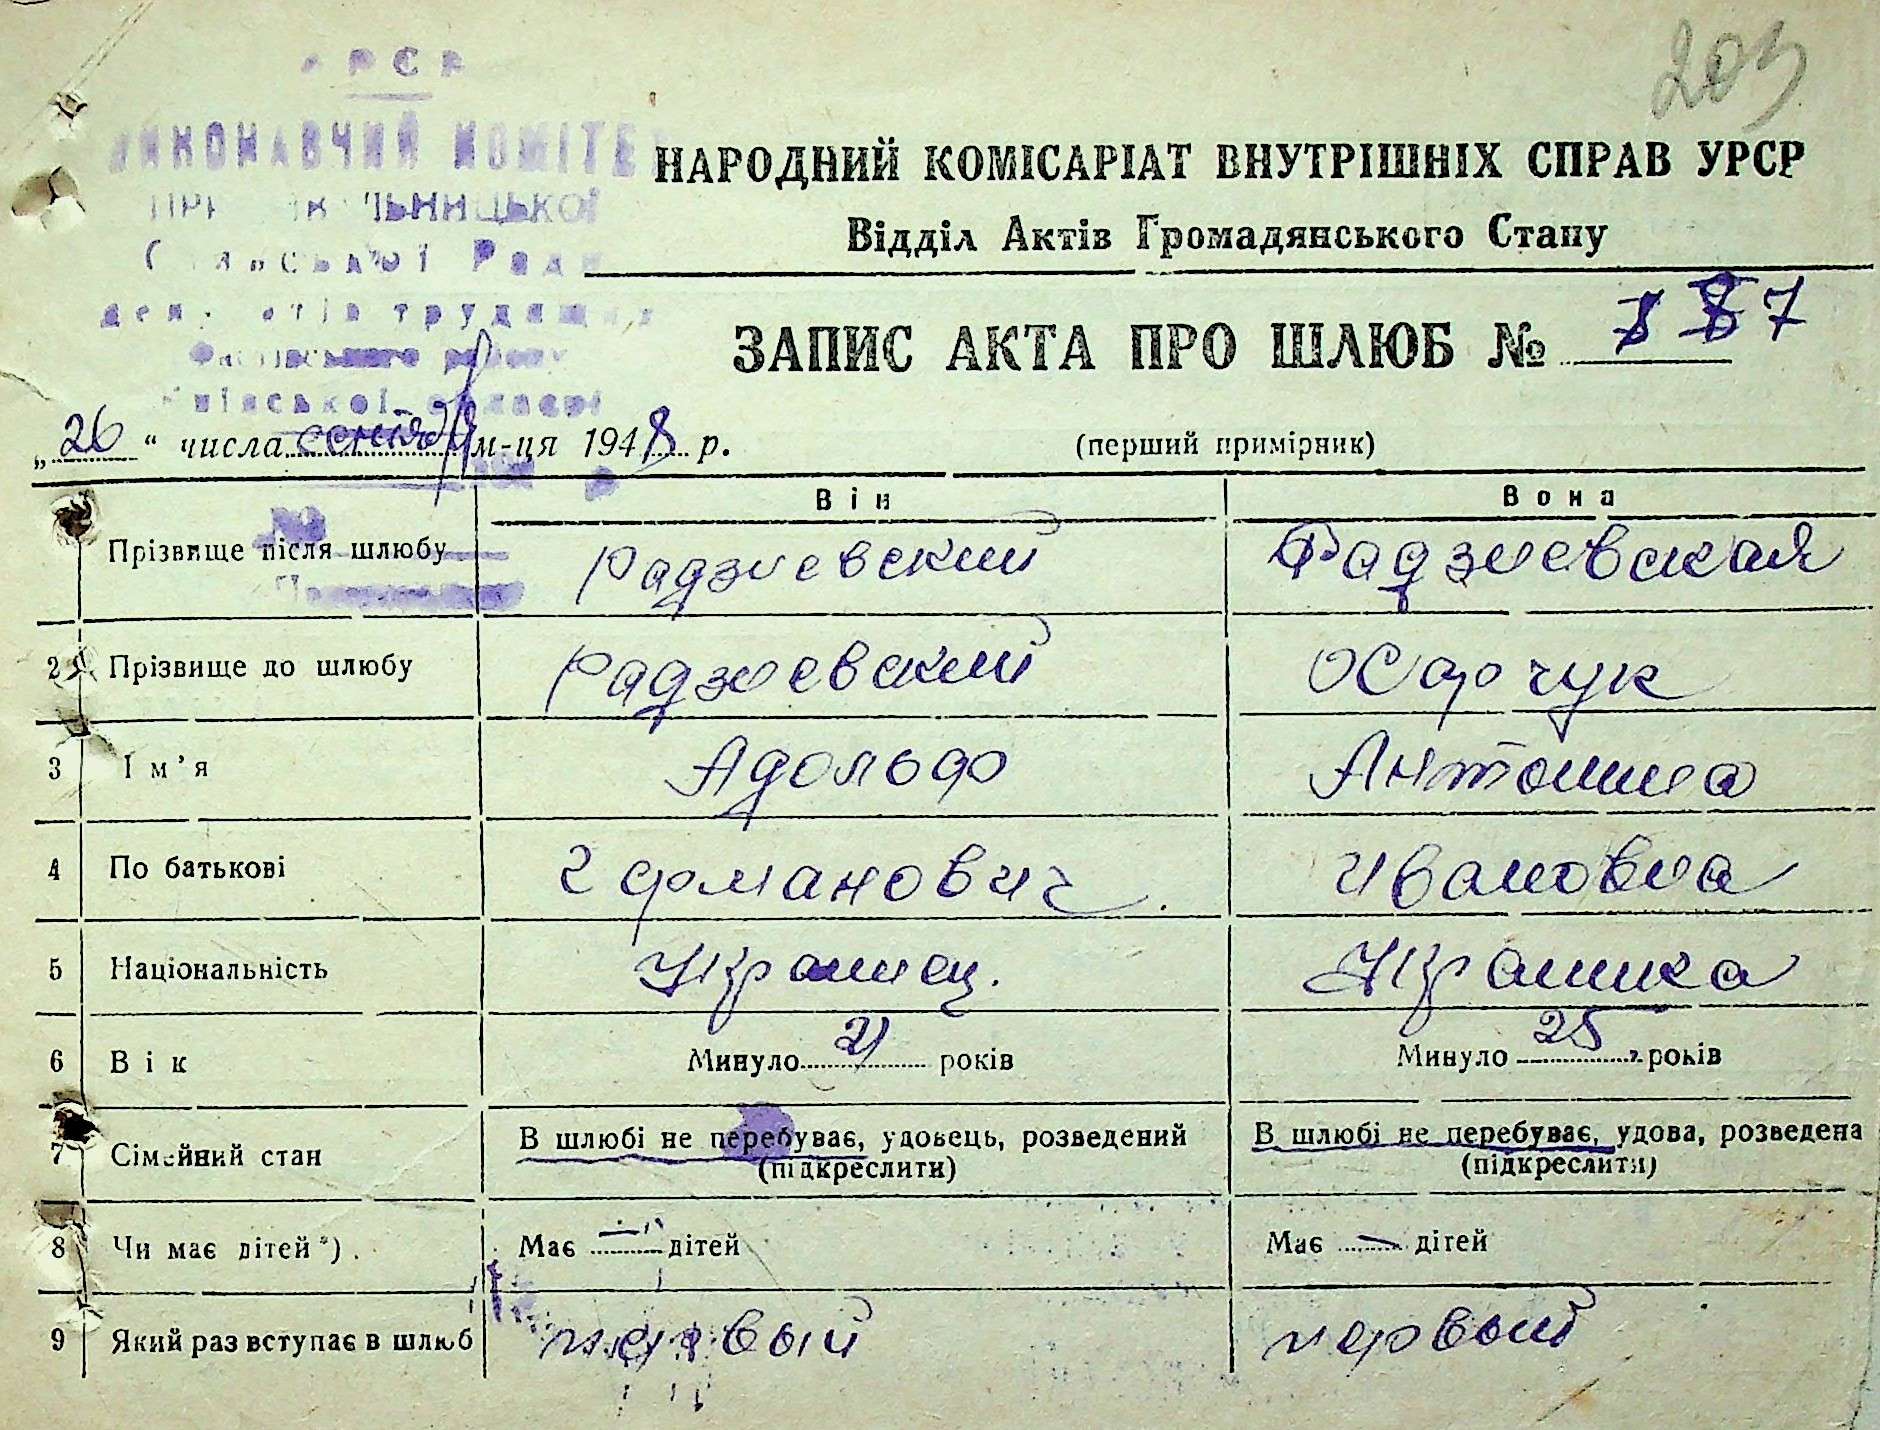 203
РСР
ВИКОНАВЧИЙ КОМІТЕ
НАРОДНИЙ КОМІСАРІАТ ВНУТРІШНІХ СПРАВ УРСР
Відділ Актів Громадянського Стану
Ради
трудящих
району
Київської області
ЗАПИС АКТА ПРО ШЛЮБ № 7
„26“ числа сентября м-ця 1948 р.
(перший примірник)
Він Вона
Прізвище після шлюбу Радзиевский Радзиевская
2 Прізвище до шлюбу Радзиевский
3 Ім'я Адольф Антонина
4 По батькові Германович Ивановна
5 Національність Украинец. Украинка
6 Вік Минуло 21 років Минуло 25 років
7 Сімейний стан В шлюбі не перебуває, удовець, розведений В шлюбі не перебуває, удова, розведена
(підкреслити) (підкреслити)
8 Чи має дітей*). Має — дітей Має — дітей
9 Який раз вступає в шлюб первый первый